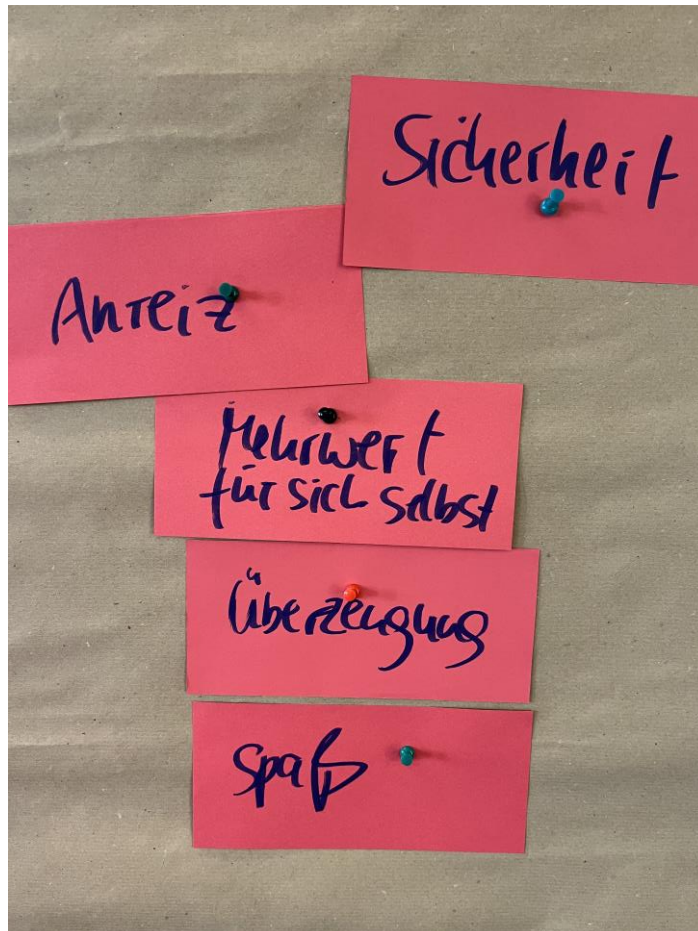 Sicherheit
Anreiz
Mehrwert
für sich selbst
Überzeugung
Spaß